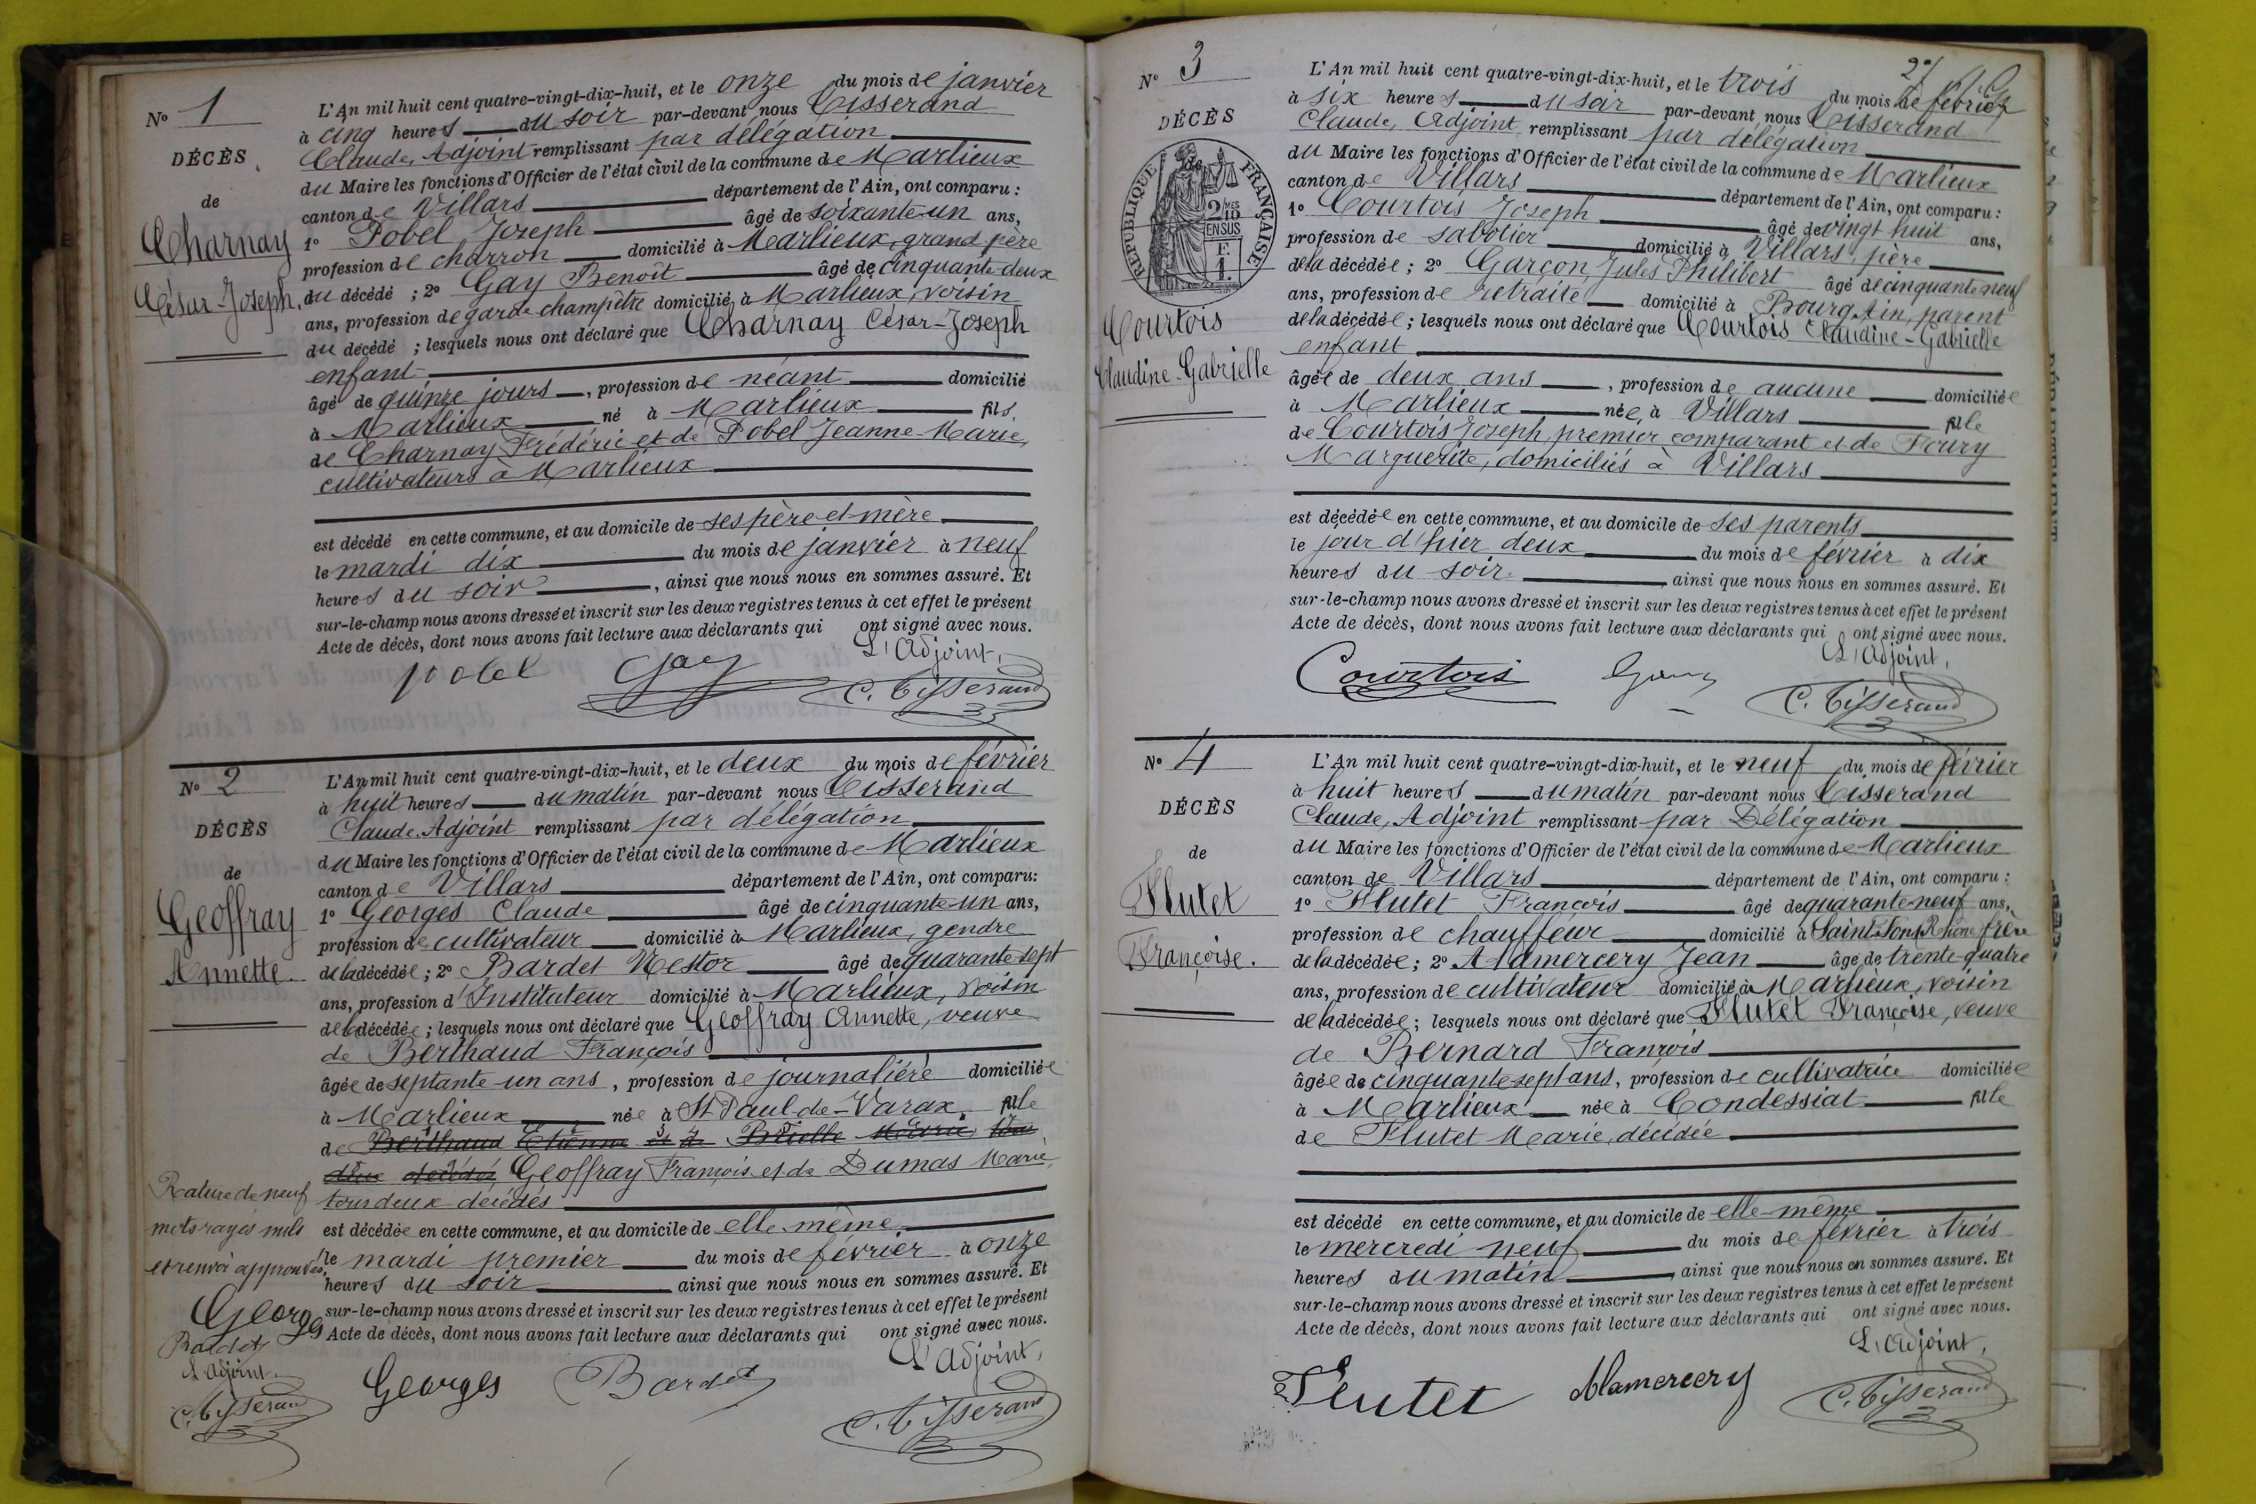 N° 1
DÉCÈS
de
Charnay
César-Joseph.
L'An mil huit cent quatre-vingt-dix-huit, et le onze du mois de janvier
à cinq heures du soir par-devant nous Tisserand
Claude, Adjoint remplissant par délégation
du Maire les fonctions d'Officier de l'état civil de la commune de Marlieux
canton de Villars département de l'Ain, ont comparu :
1° Pobel Joseph âgé de soixante-un ans,
profession de charron domicilié à Marlieux, grand père
du décédé ; 2° Gay Benoît âgé de cinquante-deux
ans, profession de garde champêtre domicilié à Marlieux, voisin
du décédé ; lesquels nous ont déclaré que Charnay César-Joseph
enfant
âgé de quinze jours, profession de néant domicilié
à Marlieux né à Marlieux fils
de Charnay Frédéric et de Pobel Jeanne-Marie,
cultivateurs à Marlieux
est décédé en cette commune, et au domicile de ses père et mère
le mardi dix du mois de janvier à neuf
heures du soir, ainsi que nous nous en sommes assuré. Et
sur-le-champ nous avons dressé et inscrit sur les deux registres tenus à cet effet le présent
Acte de décès, dont nous avons fait lecture aux déclarants qui ont signé avec nous.
L'Adjoint,
pobel Gay C. Tisserand
N° 2
DÉCÈS
de
Geoffray
Annette.
L'An mil huit cent quatre-vingt-dix-huit, et le deux du mois de février
à huit heures du matin par-devant nous Tisserand
Claude, Adjoint remplissant par délégation
du Maire les fonctions d'Officier de l'état civil de la commune de Marlieux
canton de Villars département de l'Ain, ont comparu:
1° Georges Claude âgé de cinquante-un ans,
profession de cultivateur domicilié à Marlieux, gendre
de la décédée ; 2° Bardet Nestor âgé de quarante-sept
ans, profession d'Instituteur domicilié à Marlieux, voisin
de la décédée ; lesquels nous ont déclaré que Geoffray Annette, veuve
de Berthaud François
âgée de septante-un ans, profession de journalière domiciliée
à Marlieux née à St Paul-de-Varax, fille
de Berthaud Etienne et de Marie tous
deux décédés Geoffray François et de Dumas Marie,
tous deux décédés
est décédée en cette commune, et au domicile de elle-même
le mardi premier du mois de février à onze
heures du soir ainsi que nous nous en sommes assuré. Et
sur-le-champ nous avons dressé et inscrit sur les deux registres tenus à cet effet le présent
Acte de décès, dont nous avons fait lecture aux déclarants qui ont signé avec nous.
L'Adjoint,
Georges Bardet C. Tisserand
Rature de neuf
mots rayés nuls
et renvoi approuvés.
Georges
Bardet
L'Adjoint.
C. Tisserand
2
N° 3
DÉCÈS
de
RÉPUBLIQUE FRANÇAISE
2/10
EN SUS
Courtois
Claudine-Gabrielle
L'An mil huit cent quatre-vingt-dix-huit, et le trois du mois de février
à six heures du soir par-devant nous Tisserand
Claude, Adjoint remplissant par délégation
du Maire les fonctions d'Officier de l'état civil de la commune de Marlieux
canton de Villars département de l'Ain, ont comparu :
1° Courtois Joseph âgé de vingt huit ans,
profession de sabotier domicilié à Villars, père
de la décédée ; 2° Garçon Jules Philibert âgé de cinquante neuf
ans, profession de retraité domicilié à Bourg Ain, parent
de la décédée ; lesquels nous ont déclaré que Courtois Claudine-Gabrielle
enfant
âgée de deux ans, profession de aucune domiciliée
à Marlieux née à Villars fille
de Courtois Joseph, premier comparant et de Foury
Marguerite, domiciliés à Villars
est décédée en cette commune, et au domicile de ses parents
le jour d'hier deux du mois de février à dix
heures du soir, ainsi que nous nous en sommes assuré. Et
sur-le-champ nous avons dressé et inscrit sur les deux registres tenus à cet effet le présent
Acte de décès, dont nous avons fait lecture aux déclarants qui ont signé avec nous.
L'Adjoint,
Courtois C. Tisserand
N° 4
DÉCÈS
de
Flutet
Françoise.
L'An mil huit cent quatre-vingt-dix-huit, et le neuf du mois de février
à huit heures du matin par-devant nous Tisserand
Claude, Adjoint remplissant par Délégation
du Maire les fonctions d'Officier de l'état civil de la commune de Marlieux
canton de Villars département de l'Ain, ont comparu :
1° Flutet François âgé de quarante-neuf ans,
profession de chauffeur domicilié à Saint-Fons Rhône frère
de la décédée ; 2° Alamercery Jean âgé de trente-quatre
ans, profession de cultivateur domicilié à Marlieux, voisin
de la décédée ; lesquels nous ont déclaré que Flutet Françoise, veuve
de Bernard François
âgée de cinquante-sept ans, profession de cultivatrice domiciliée
à Marlieux née à Condessiat fille
de Flutet Marie, décédée
est décédé en cette commune, et au domicile de elle-même
le mercredi neuf du mois de février à trois
heures du matin, ainsi que nous nous en sommes assuré. Et
sur-le-champ nous avons dressé et inscrit sur les deux registres tenus à cet effet le présent
Acte de décès, dont nous avons fait lecture aux déclarants qui ont signé avec nous.
L'Adjoint,
Flutet Alamercery C. Tisserand